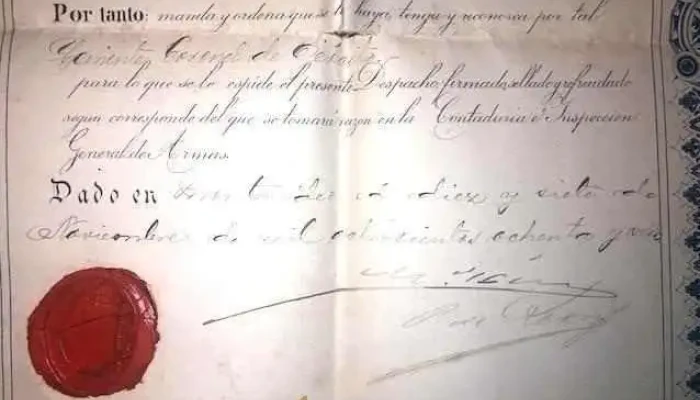 Por tanto: manda y ordena que se le haya, tenga y reconozca por tal
Teniente Coronel de
para lo que se le expide el presente Despacho, firmado, sellado y refrendado
segun corresponde del que se tomará razon en la Contaduria é Inspeccion
General de Armas.
Dado en diez y siete de
Noviembre de mil ochocientos ochenta y